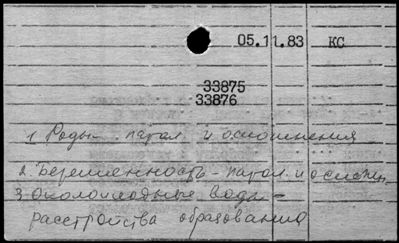 05.11.83 КС
33875
33876
1. Роды - патол и осложнения
2. Беременность - патол. и осложн.
3. Околоплодные воды -
расстройства образования